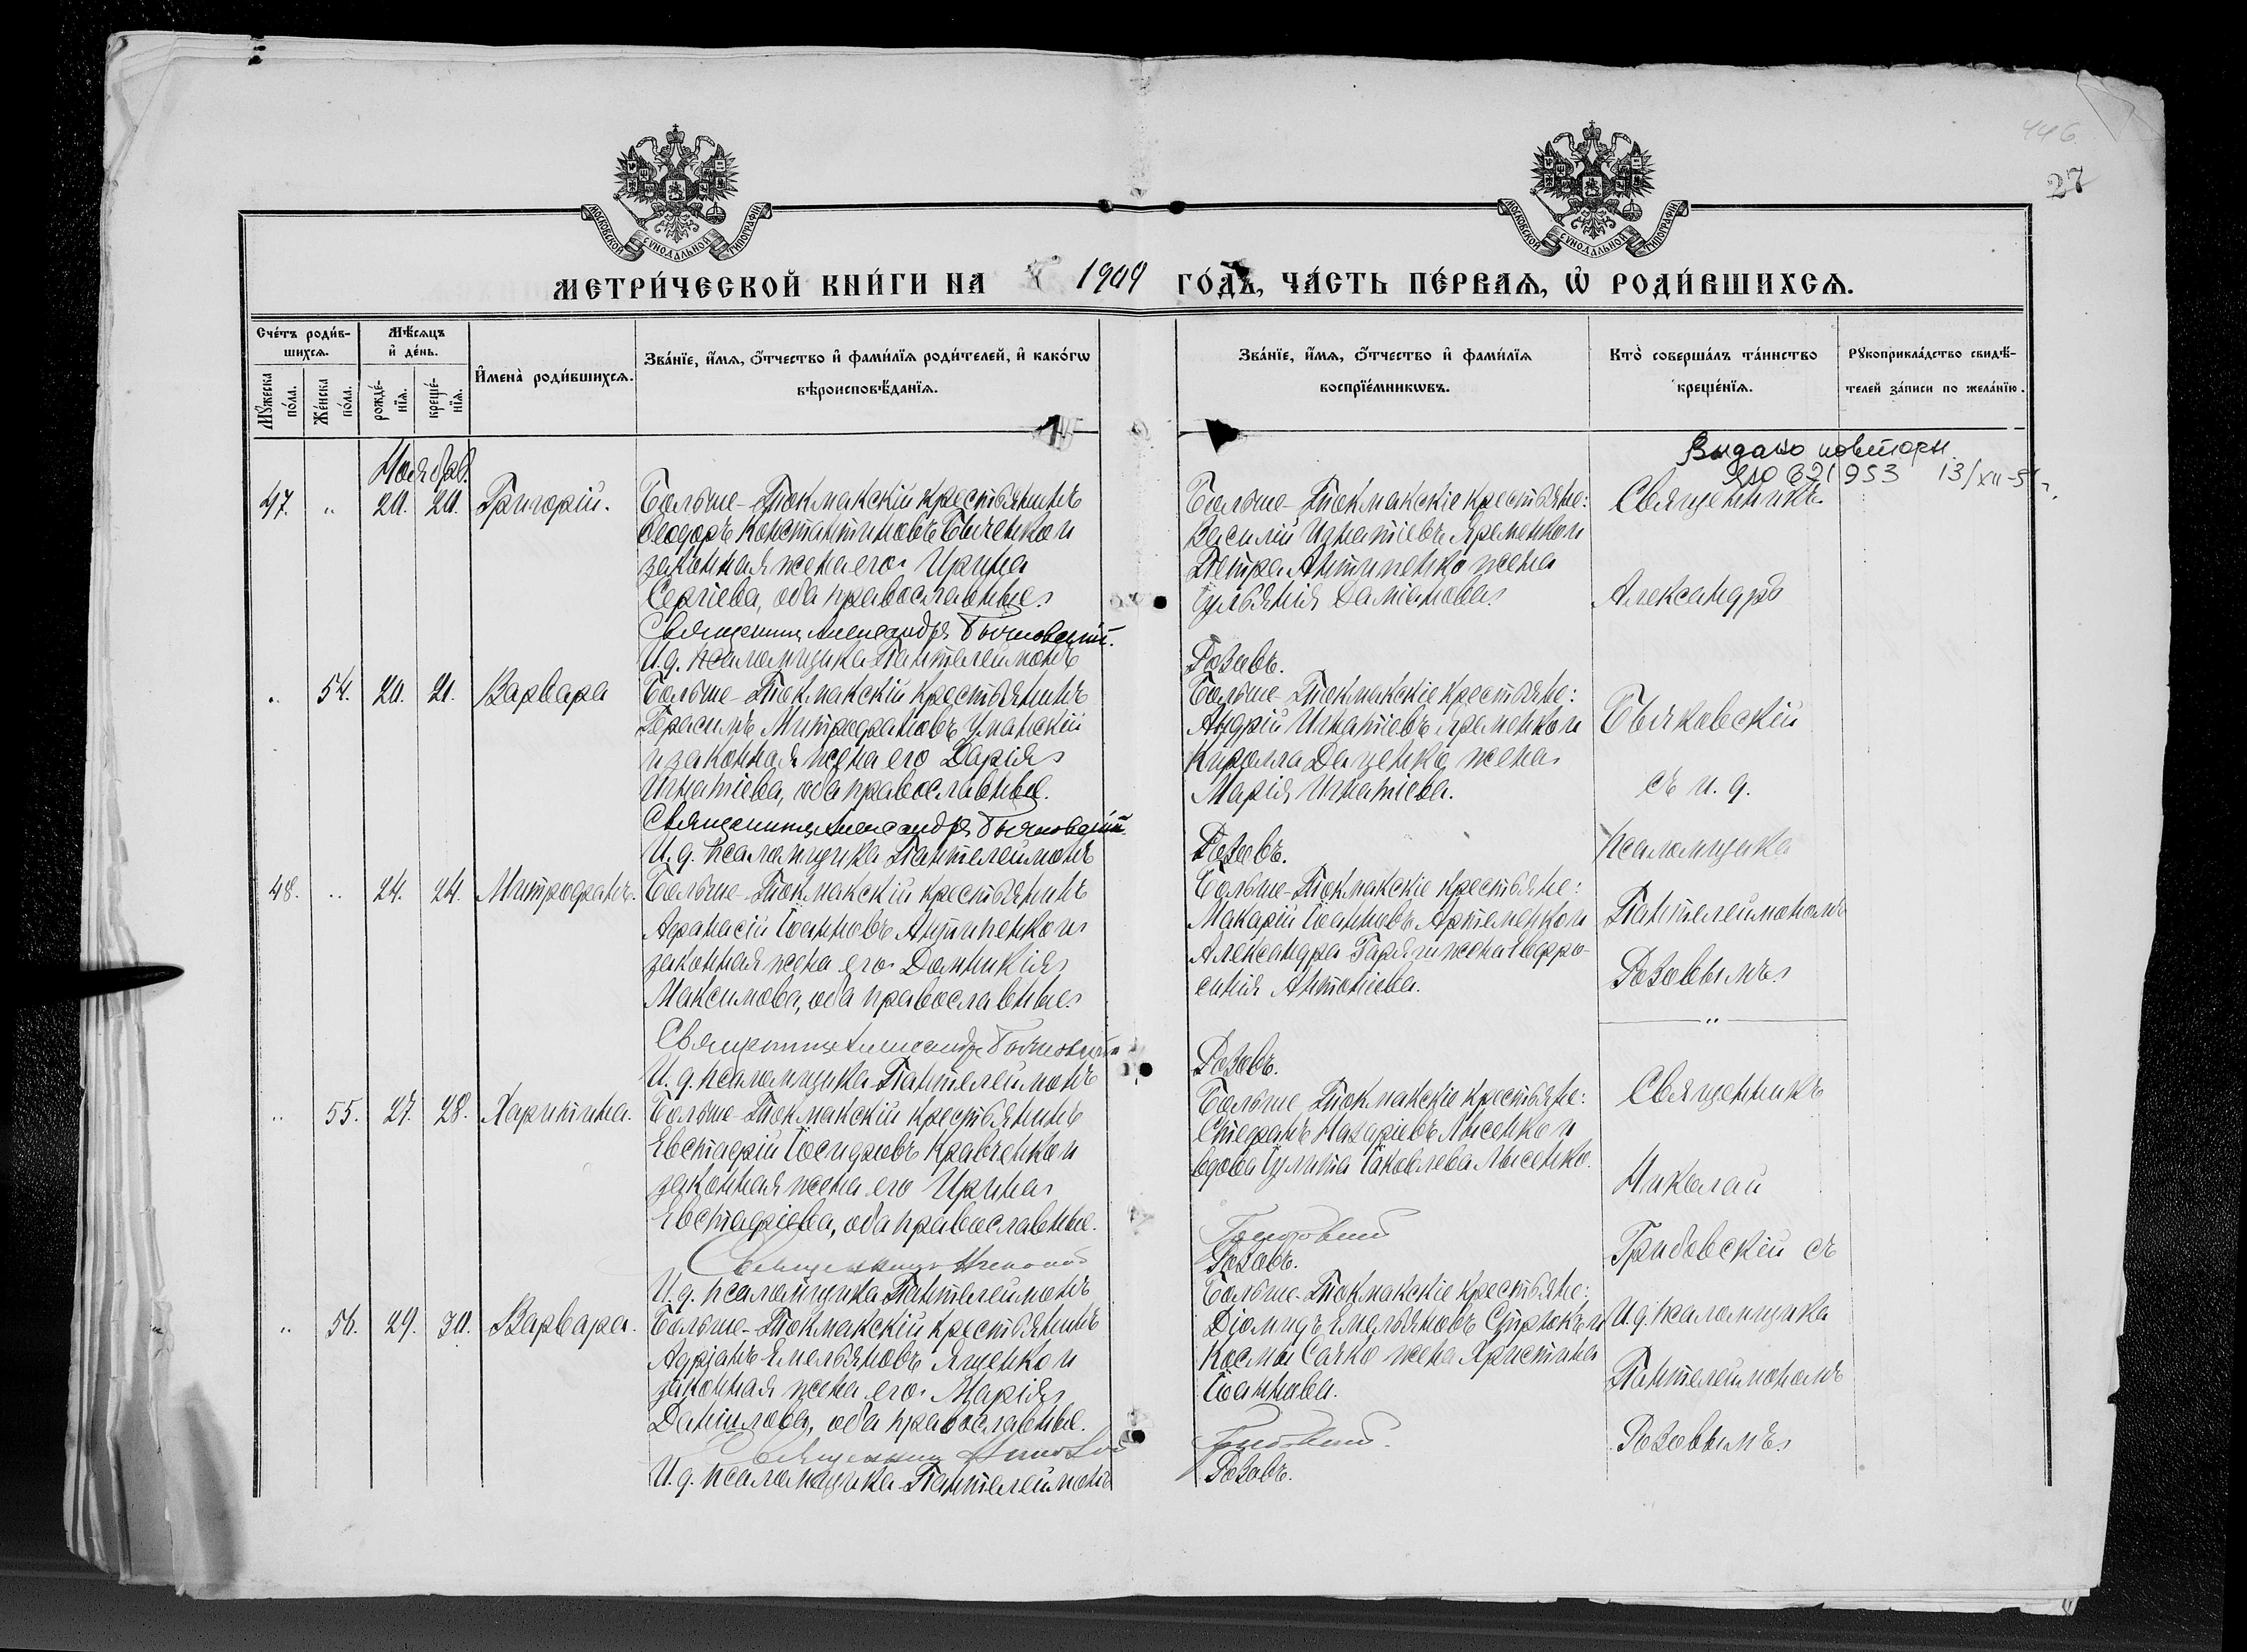 446
27
МОСКОВСКОЙ СУНОДАЛЬНОЙ ТИПОГРАФІИ
МОСКОВСКОЙ СУНОДАЛЬНОЙ ТИПОГРАФІИ
МЕТРИ́ЧЕСКОЙ КНИ́ГИ НА 1909 ГО́ДЪ, ЧА́СТЬ ПЕ́РВАѦ, Ѡ҆ РОДИ́ВШИХСѦ.
Сче́тъ роди́в-
шихсѧ.
Мꙋ́жеска по́ла.
Же́нска по́ла.
Мѣ́сѧцъ
и҆ де́нь.
рожде́-
нїѧ.
креще́-
нїѧ.
И҆мена̀ роди́вшихсѧ.
Зва́нїе, и҆́мѧ, ѻ҆́тчество и҆ фами́лїѧ роди́телей, и҆ како́гѡ
вѣроисповѣ́данїѧ.
Зва́нїе, и҆́мѧ, ѻ҆́тчество и҆ фами́лїѧ
воспрїе́мникѡвъ.
Кто̀ соверша́лъ та́инство
креще́нїѧ.
Рꙋкоприкла́дство свидѣ́-
телей за́писи по жела́нїю.
Ноябрь.
Видано повторн.
621953 13/XII-5
47. „ 20. 20. Григорій.
Больше-Токмакскій крестьянинъ
Ѳеодоръ Константиновъ Быченко и
законная жена его Ирина
Сергіева, оба православные.
Священникъ Александръ Быковскій.
И. д. псаломщика Пантелеимонъ
Больше-Токмакскіе крестьяне:
Василій Игнатіевъ Яременко и
Петра Антипенко жена
Іуліанія Даміанова.
Розовъ.
Священникъ
Александръ
„ 54. 20. 21. Варвара
Больше-Токмакскій крестьянинъ
Герасимъ Митрофановъ Уманскій
и законная жена его Дарія
Игнатіева, оба православные.
Священникъ Александръ Быковскій.
И. д. псаломщика Пантелеимонъ
Больше-Токмакскіе крестьяне:
Андрій Игнатіевъ Яременко и
Кирилла Даценко жена
Марія Игнатіева.
Розовъ.
Быковскій
съ и. д.
псаломщика
48. „ 24. 24. Митрофанъ.
Больше-Токмакскій крестьянинъ
Афанасій Іоанновъ Антипенко и
законная жена его Домникія
Максимова, оба православные.
Священникъ Александръ Быковскій
И. д. псаломщика Пантелеимонъ
Больше-Токмакскіе крестьяне:
Макарій Іоанновъ Артеменко и
Александра жена Евфро-
синія Антоніева.
Розовъ.
Пантелеимономъ
Розовымъ.
„
„ 55. 27. 28. Харитина.
Больше-Токмакскій крестьянинъ
Евстафій Іосифовъ Кравченко и
законная жена его Ирина
Евстафіева, оба православные.
Священникъ Николай
И. д. псаломщика Пантелеимонъ
Больше-Токмакскіе крестьяне:
Стефанъ Назаріевъ Лысенко и
вдова Іулита Іаковлева Лысенко.
Грибовскій
Розовъ.
Священникъ
Николай
Грибовскій съ
„ 56. 29. 30. Варвара.
Больше-Токмакскій крестьянинъ
Адріанъ Емельяновъ Яценко и
законная жена его Марія
Даніилова, оба православные.
Священникъ Николай
И. д. псаломщика Пантелеимонъ
Больше-Токмакскіе крестьяне:
Діомидъ Емельяновъ и
Космы Сачко жена Христина
Іоаннова.
Грибовскій.
Розовъ.
И. д. псаломщика
Пантелеимономъ
Розовымъ.